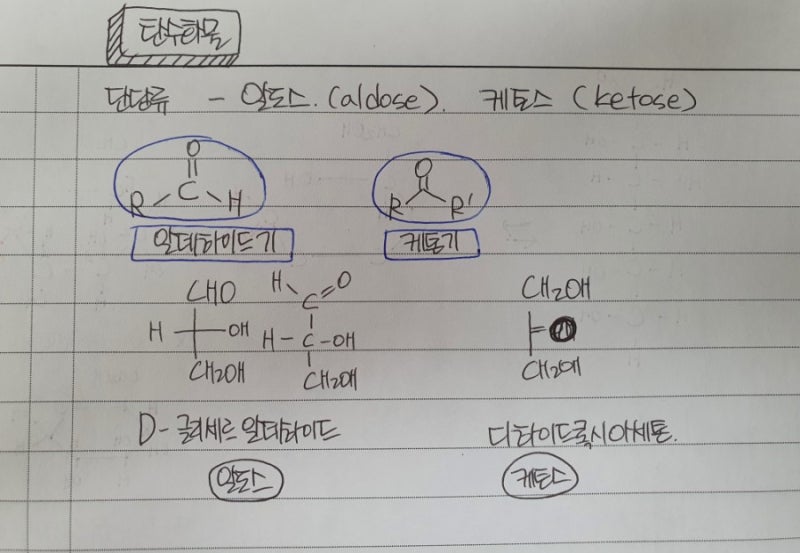 탄수화물
단당류 - 알도스. (aldose). 케토스 (ketose)
O
R C H
O
R R'
알데하이드기 케톤기
CHO H C O CH₂OH
H OH H-C-OH
CH₂OH CH₂OH CH₂OH
D-글리세르알데하이드 디하이드록시아세톤.
알도스 케토스